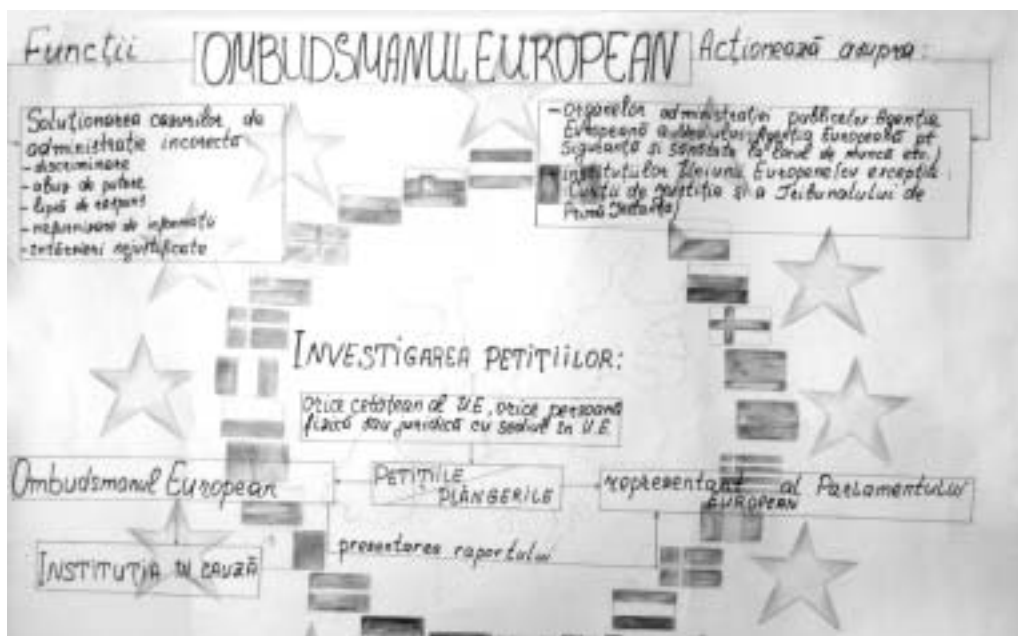 Funcții
OMBUDSMANUL EUROPEAN
Acționează asupra:
Soluționarea cazurilor de
administrație incorectă
- discriminare
- abuz de putere
- lipsă de răspuns
- nefurnizare de informații
- întârzieri nejustificate
- organelor administrației publice(ex Agenția
Europeană a Mediului, Agenția Europeană pt
Siguranță si sănătate la locul de muncă etc.)
instituțiilor Uniunii Europene(ex excepția
Curții de justiție și a Tribunalului de
Primă Instanță)
INVESTIGAREA PETIȚIILOR:
Orice cetățean al U.E, orice persoană
fizică sau juridică cu sediul în U.E.
Ombudsmanul European
PETIȚIILE
PLÂNGERILE
reprezentant al Parlamentului
EUROPEAN
prezentarea raportului
INSTITUȚIA ÎN CAUZĂ